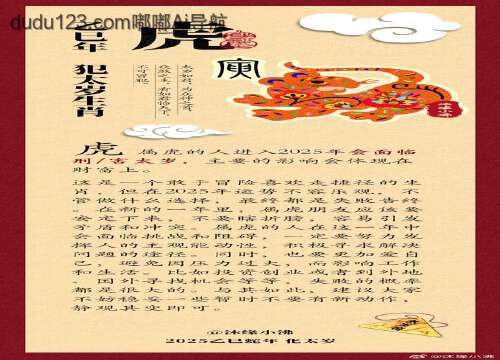 dudu123.com嘟嘟Ai导航
乙巳年 犯太岁生肖
虎
太岁如君，为众神之首，
众煞之主，有如君临天下，
不可冒犯。
寅
虎 属虎的人进入2025年会面临
刑/害太岁，主要的影响会体现在
财富上。
这是一个敢于冒险喜欢走捷径的生
肖，但在2025年运势不容乐观，不
管做什么选择，最终都是失败告终
。在新的一年里，属虎朋友应该要
安定下来，不要瞎折腾，容易引发
矛盾和冲突。属虎的人在这一年中
会面临挑战和阻碍，一定要努力发
挥人的主观能动性，积极寻求解决
问题的途径。同时，也要更加爱自
己，避免因压力过大，而影响工作
和生活。比如投资创业或者到外地
、国外寻找机会等等，失败的概率
都是很大的。与其如此，建议大家
不妨稳妥一些暂时不要有新动作，
静观其变即可。
@沐缘小沸
2025乙巳蛇年 化太岁
@沐缘小沸